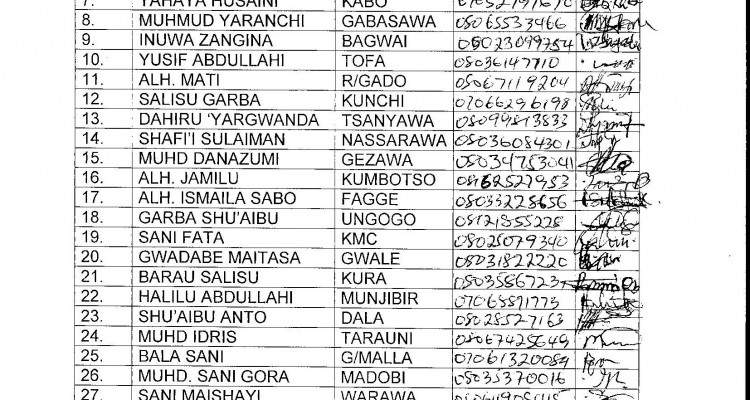 7. YAHAYA HUSAINI KABO
8. MUHMUD YARANCHI GABASAWA 08065533466
9. INUWA ZANGINA BAGWAI 08023099754
10. YUSIF ABDULLAHI TOFA 08036147710
11. ALH. MATI R/GADO 08067119204
12. SALISU GARBA KUNCHI 07066296198
13. DAHIRU ‘YARGWANDA TSANYAWA 08099813833
14. SHAFI'I SULAIMAN NASSARAWA 08036084301
15. MUHD DANAZUMI GEZAWA 08034753041
16. ALH. JAMILU KUMBOTSO
17. ALH. ISMAILA SABO FAGGE 08033228656
18. GARBA SHU'AIBU UNGOGO 08121855228
19. SANI FATA KMC 08028079340
20. GWADABE MAITASA GWALE 08031822220
21. BARAU SALISU KURA 0803586723
22. HALILU ABDULLAHI MUNJIBIR 07068891773
23. SHU'AIBU ANTO DALA 08028527163
24. MUHD IDRIS TARAUNI 08067425649
25. BALA SANI G/MALLA 07061320089
26. MUHD. SANI GORA MADOBI 08035370016
27. SANI MAISHAYI WARAWA